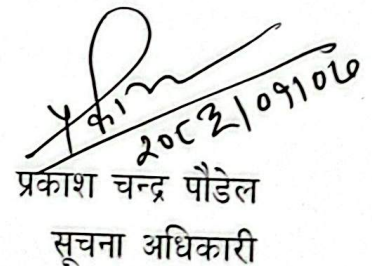 २०८३/०१/०७
प्रकाश चन्द्र पौडेल
सूचना अधिकारी